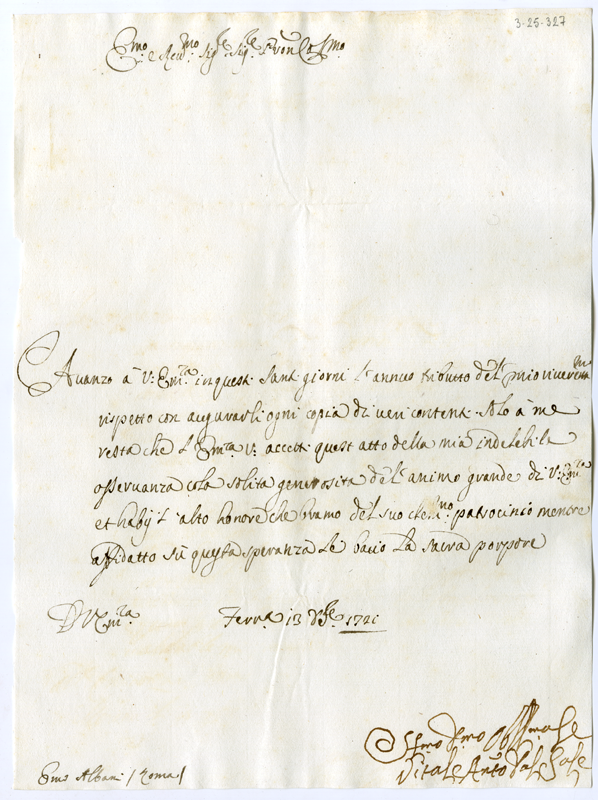 3-25-327
Emo e Reumo Sigre Sigre Pron Colmo
Auanzo à V: Emza in questi santi giorni l'annuo tributto dell mio riuerentmo
rispetto con augurarli ogni copia di ueri contenti. Solo à me
resta che l'Emza V. accetti quest atto della mia indelebile
osseruanza cola solita generosita dell animo grande di V: Emza
et habij l'alto honore che bramo del suo patrocinio mentre
affidatto sù questa speranza Le bacio La sacra porpora
D V Emza
Ferra 13 Xbre 1721
Vitale Anto
Emo Albani / Roma /